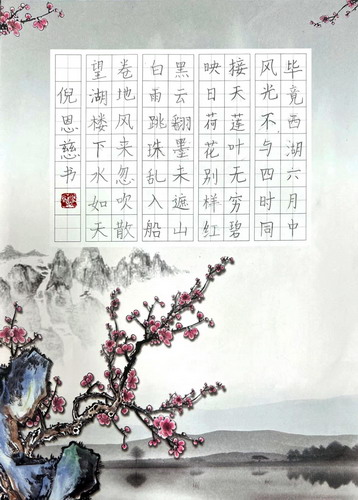 毕竟西湖六月中
风光不与四时同
接天莲叶无穷碧
映日荷花别样红
黑云翻墨未遮山
白雨跳珠乱入船
卷地风来忽吹散
望湖楼下水如天
倪恩慈书